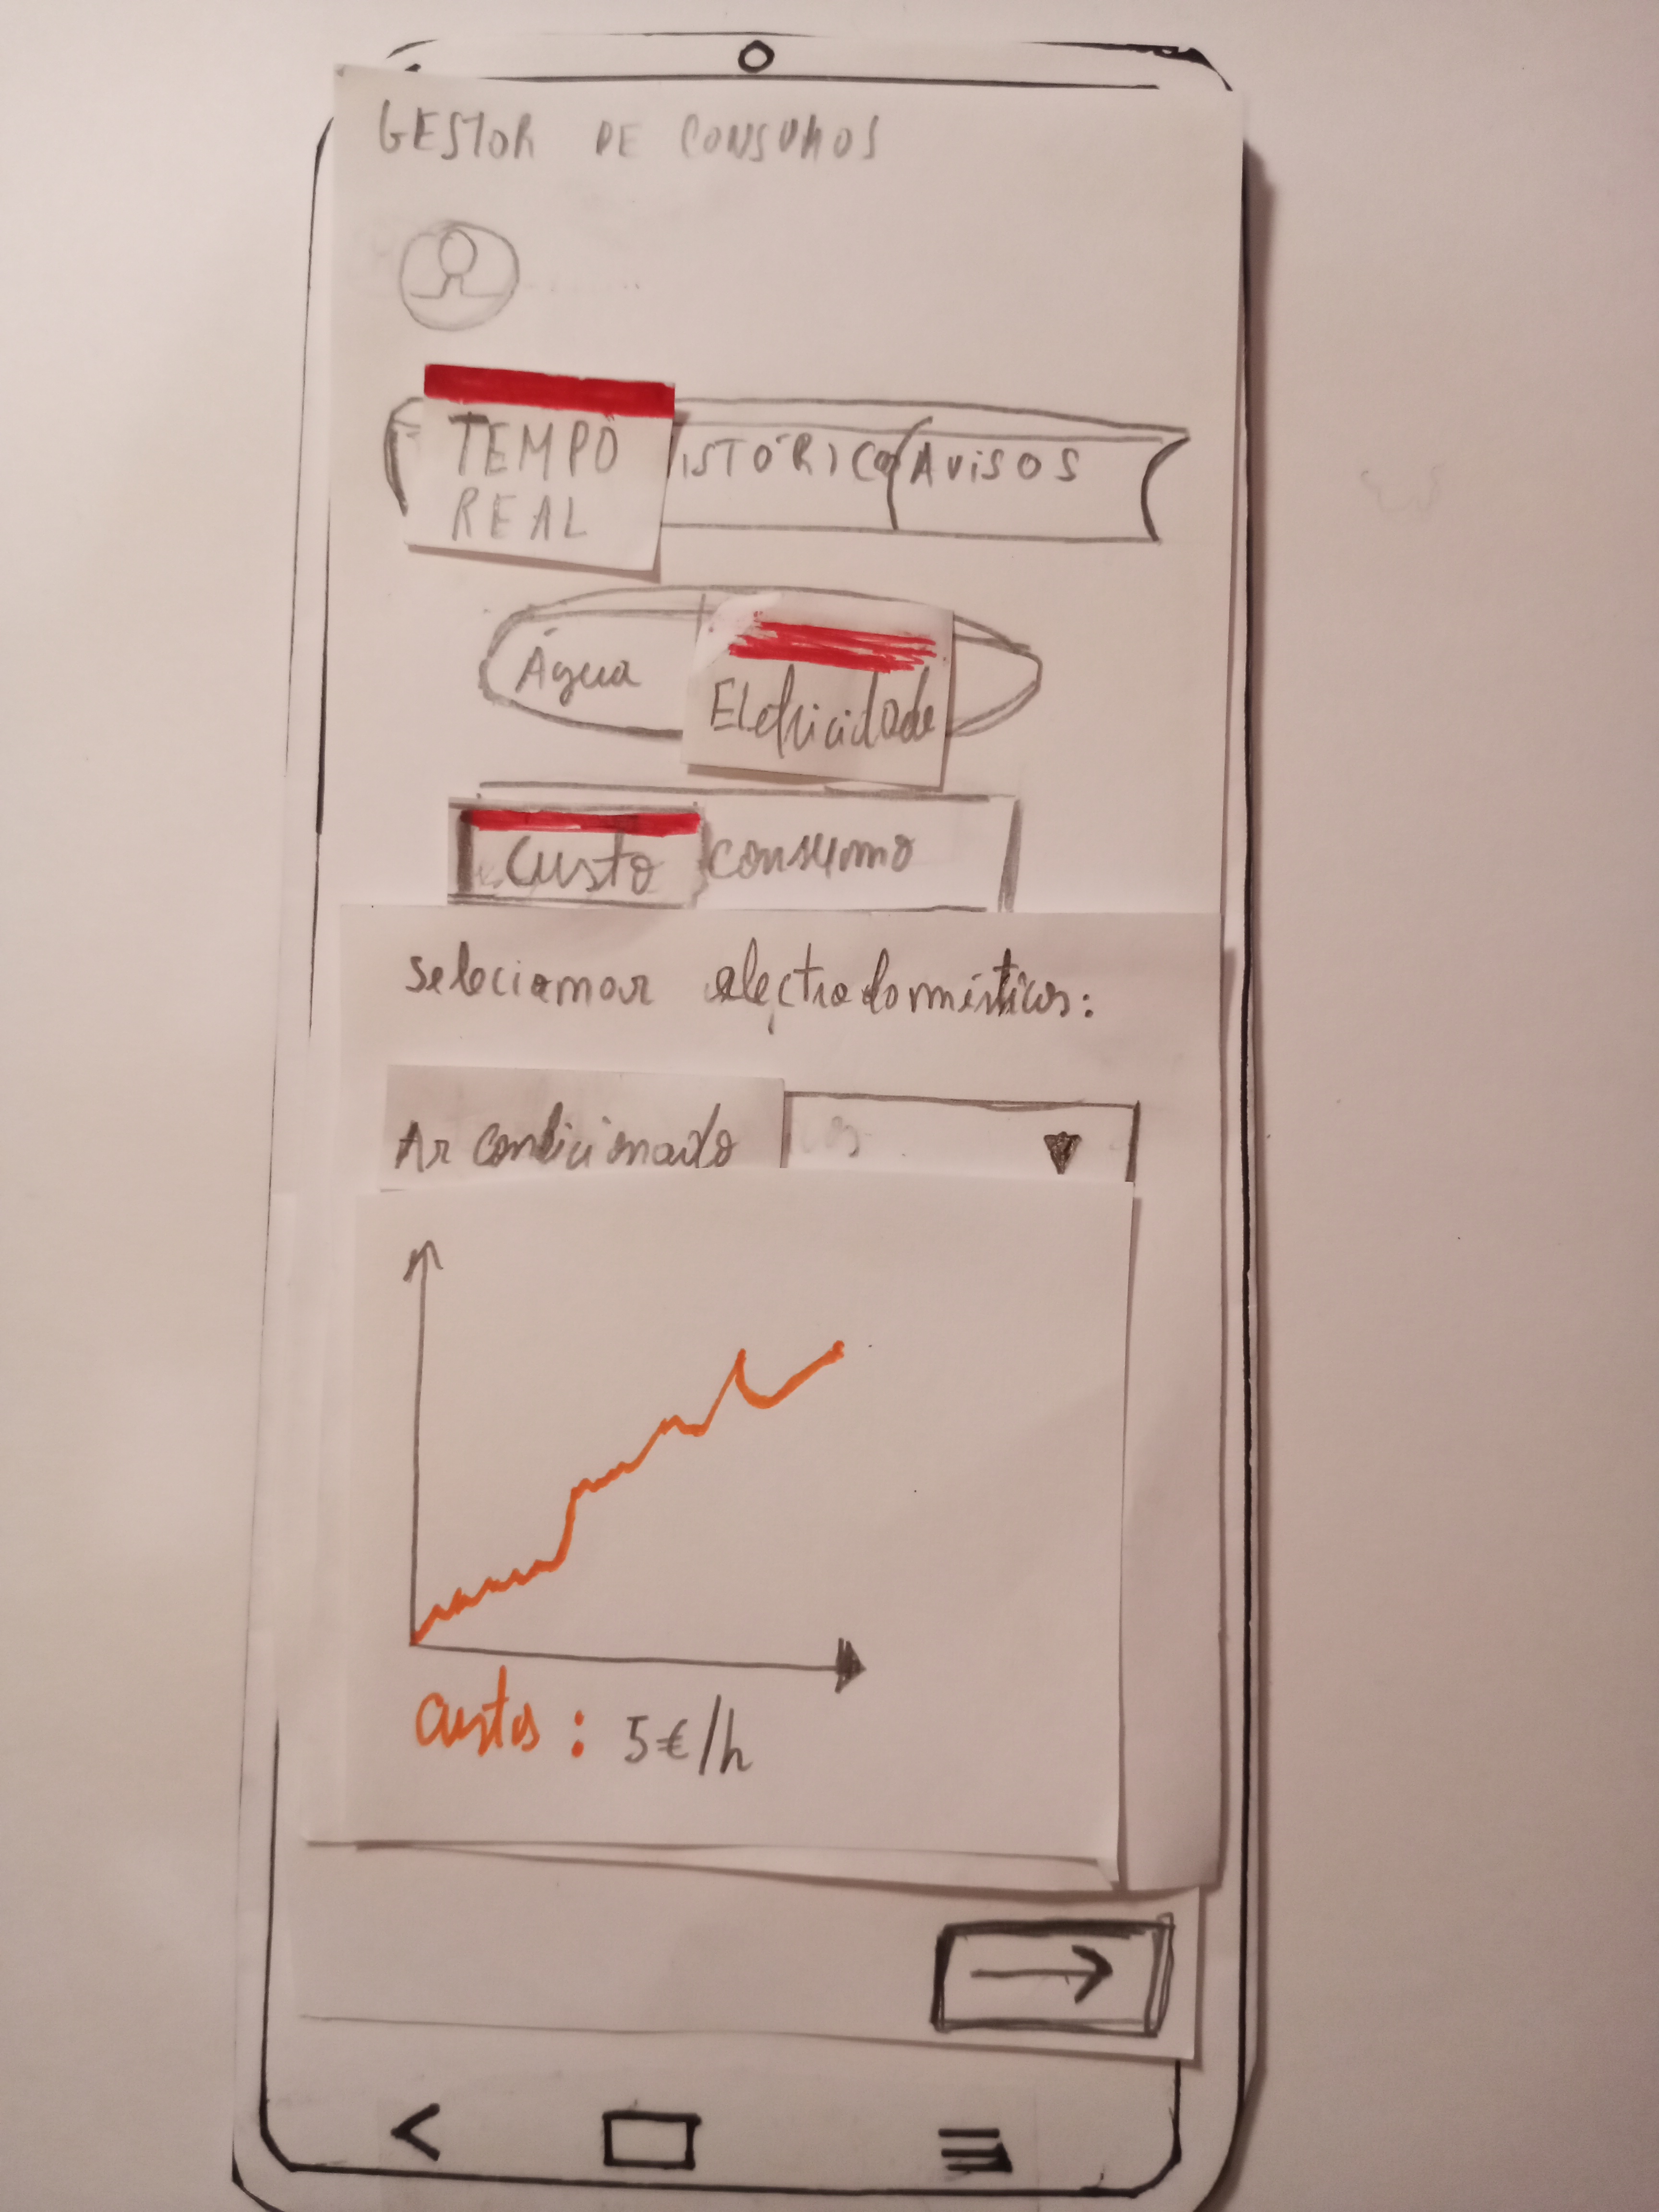 GESTOR DE CONSUMOS
TEMPO REAL ISTÓRICO AVISOS
Água Eletricidade
Custo consumo
selecionar electrodomésticos:
Ar condicionado
custos: 5€/h